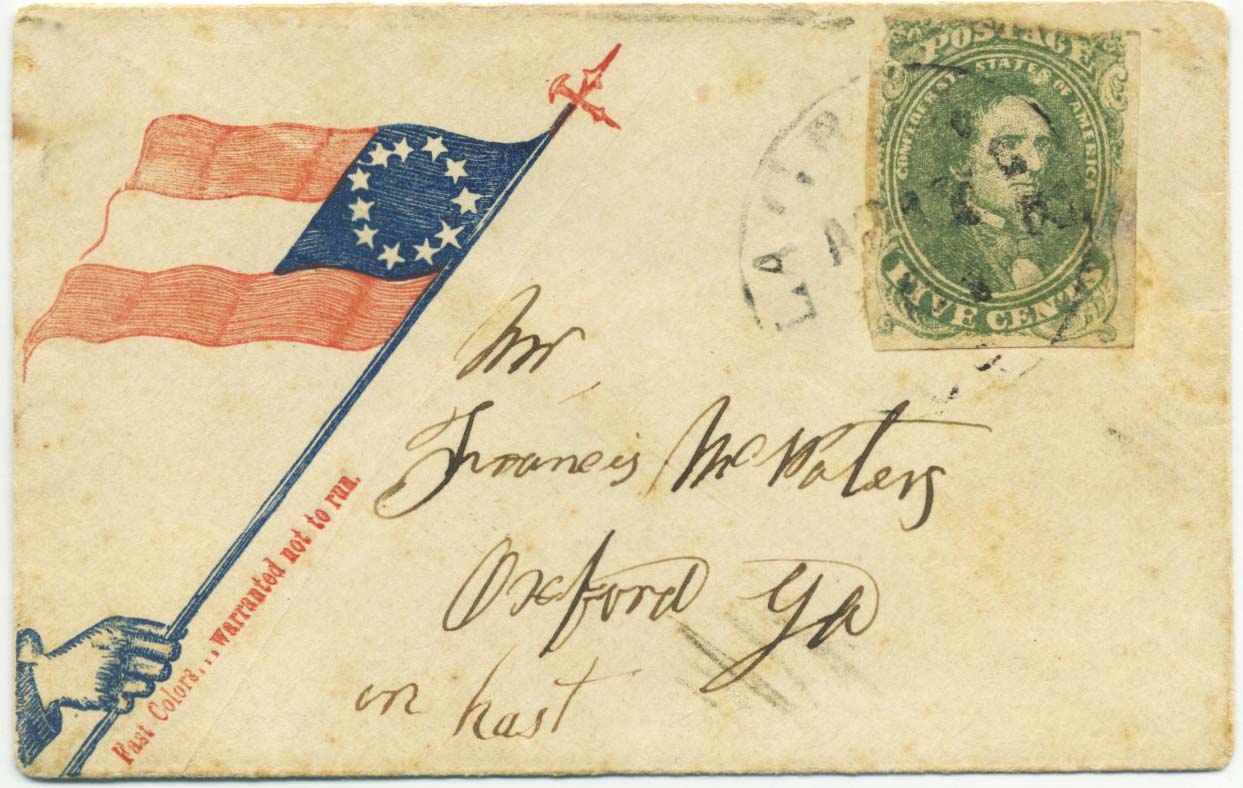 POSTAGE
CONFEDERATE STATES OF AMERICA
FIVE CENTS
Mr
Francis McWaters
Oxford Ga
in hast
Fast Colors...warranted not to run.